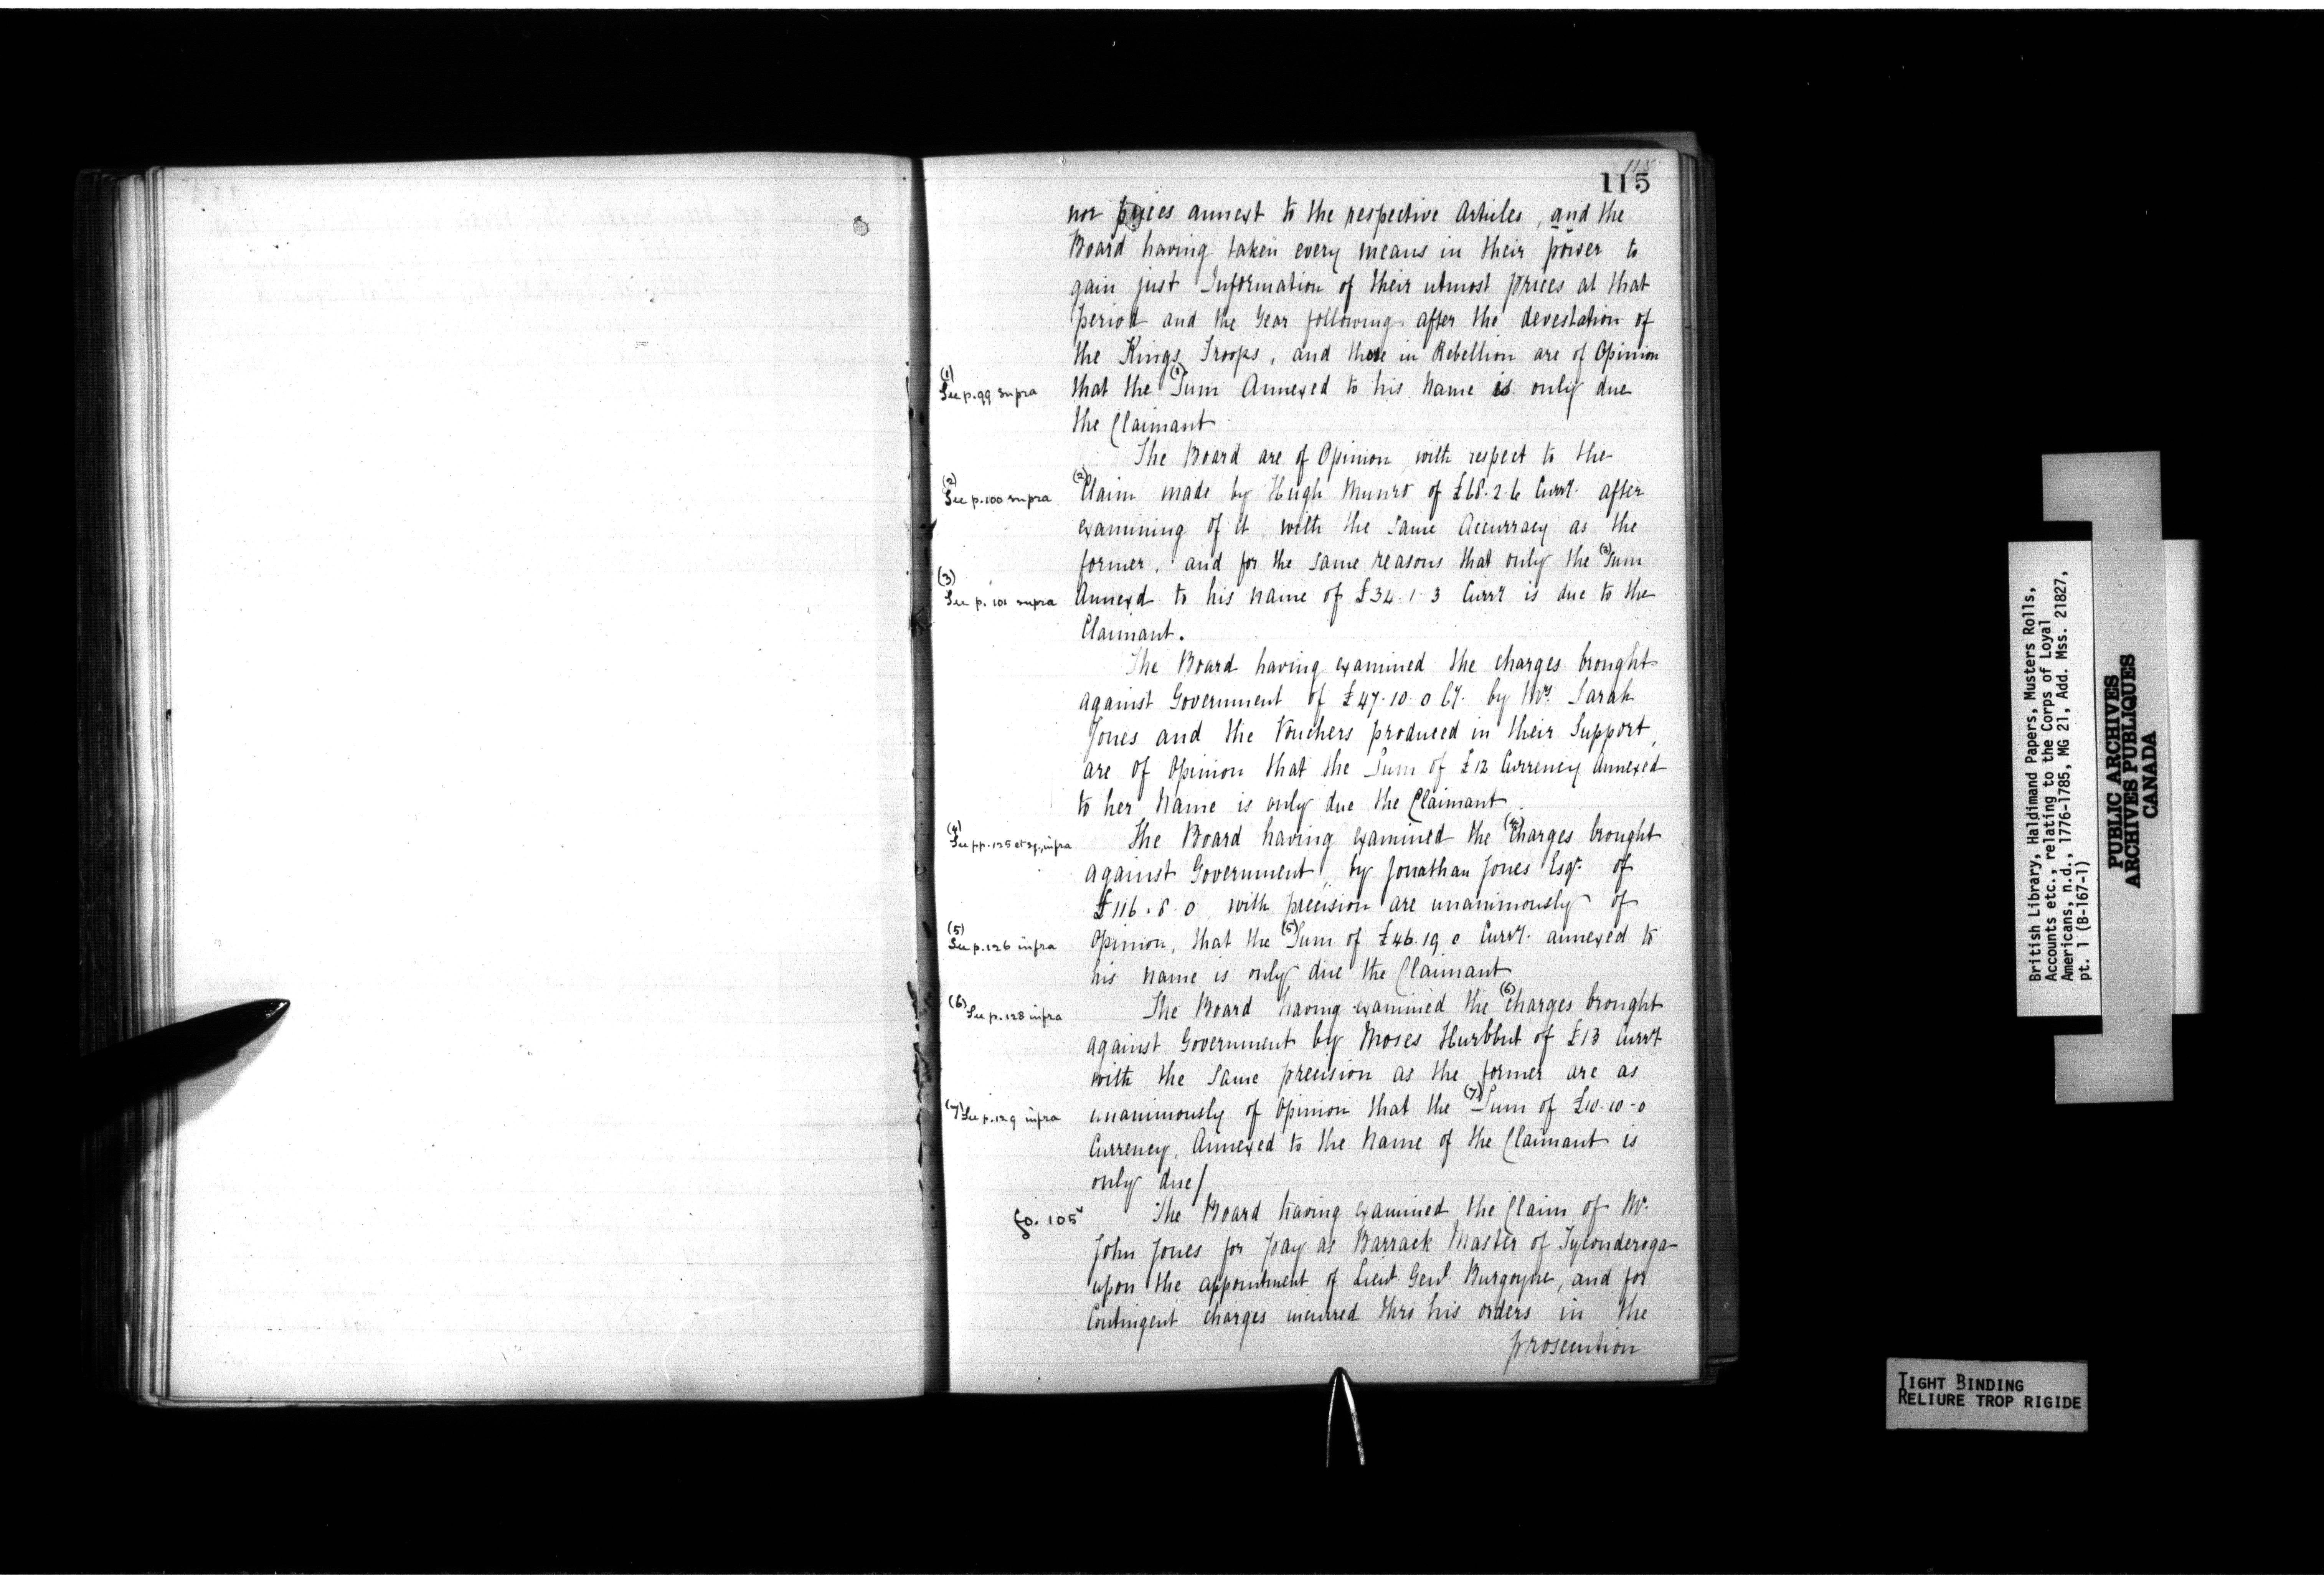 115
115
nor prices annext to the respective Articles, and the
Board having taken every means in their power to
gain just Information of their utmost prices at that
period and the Year following after the devestation of
the Kings Troops, and those in Rebellion are of Opinion
(1)
See p. 99 supra
that the (1) Sum Annexed to his Name is only due
the Claimant
The Board are of Opinion with respect to the
(2)
See p. 100 supra
(2) Claim made by Hugh Munro of £68.2.6 Curry. after
examining of it with the same Accurracy as the
former, and for the same reasons that only the (3) Sum
(3)
See p. 101 supra
Annexd to his name of £34.1.3 Curry is due to the
Claimant.
The Board having examined the charges brought
against Government of £47.10.0 Cy. by Mrs Sarah
Jones and the Vouchers produced in their Support,
are of Opinion that the Sum of £12 Currency Annexed
to her Name is only due the Claimant.
(4)
See pp. 125 et sq., infra
The Board having examined the (4) charges brought
against Government, by Jonathan Jones Esqr. of
£116.8.0 with precision are unanimously of
(5)
See p. 126 infra
Opinion, that the (5) Sum of £46.19.0 Curry. annexed to
his name is only due the Claimant
(6) See p. 128 infra
The Board having examined the (6) charges brought
against Government by Moses Hurbbut of £13 Curry
with the same precision as the former are as
(7) See p. 129 infra
unanimously of Opinion that the (7) Sum of £10.10-0
Currency, Annexed to the Name of the Claimant is
only due/
fo. 105v
The Board having examined the Claim of Mr.
John Jones for pay as Barrack Master of Tyconderoga
upon the appointment of Lieut. Genl. Burgoyne, and for
Contingent charges incurred thro his orders in the
prosecution
British Library, Haldimand Papers, Musters Rolls,
Accounts etc., relating to the Corps of Loyal
Americans, n.d., 1776-1785, MG 21, Add. Mss. 21827,
pt. 1 (B-167-1)
PUBLIC ARCHIVES
ARCHIVES PUBLIQUES
CANADA
TIGHT BINDING
RELIURE TROP RIGIDE